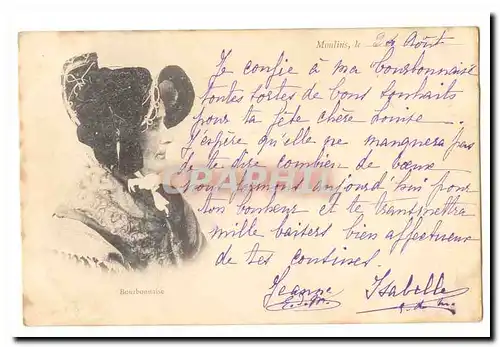 Moulins, le 24 Août
Je confie à ma bourbonnaise
toutes sortes de bons souhaits
pour ta fête chère Louise.
J'espère qu'elle ne manquera pas
de te dire combien de bœux
nous formons aujourd'hui pour
ton bonheur et te transmettra
mille baisers bien affectueux
de tes cousines.
Jeanne Isabelle
CPHRPM
Bourbonnaise